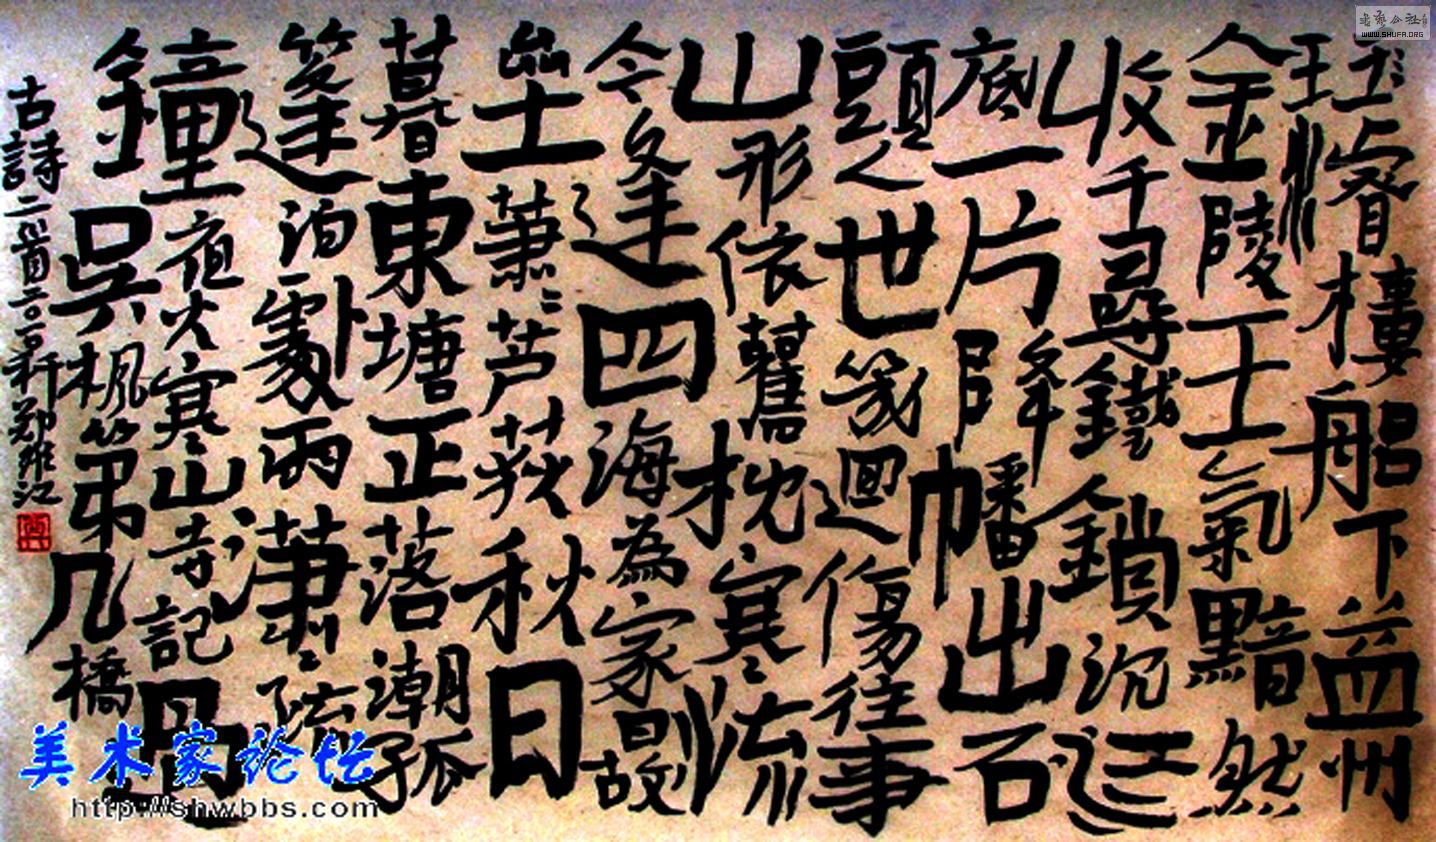 王濬樓船下益州
金陵王氣黯然
收千尋鐵鎖沉江
底一片降幡出石
頭人世幾迴傷往事
山形依舊枕寒流
今逢四海為家日故
壘蕭〻芦荻秋日
暮東塘正落潮孤
篷泊處雨瀟〻疏
鐘夜火寒山寺記過
吳楓第几橋
古詩二首二〇一郑維江
书艺公社
WWW.SHUFA.ORG
美术家论坛
http://shwbbs.com